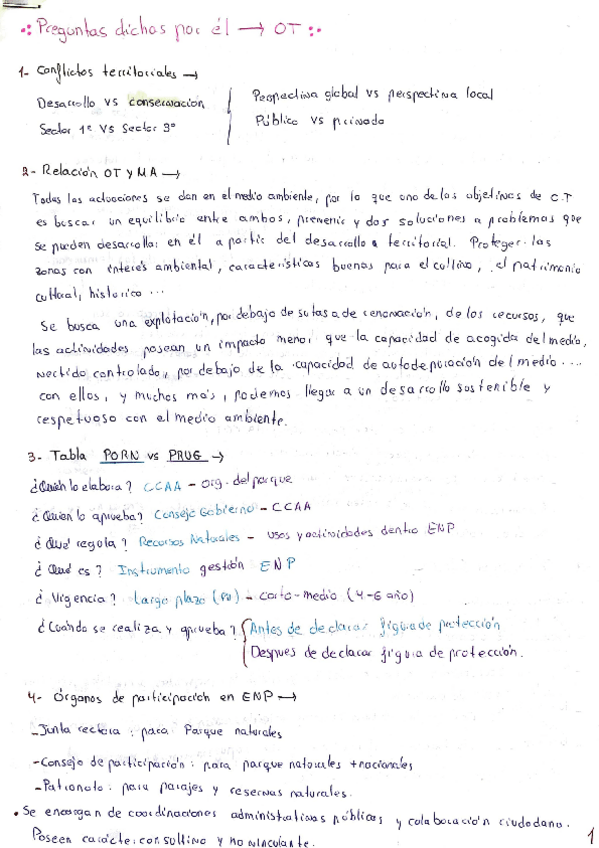 Preguntas dichas por él → OT
1- Conflictos territoriales →
Desarrollo vs conservación
Sector 1º vs Sector 3º
Perspectiva global vs perspectiva local
Público vs privado
2- Relación OT y MA →
Todas las actuaciones se dan en el medio ambiente, por lo que uno de los objetivos de O.T
es buscar un equilibrio entre ambos, prevenir y dar soluciones a problemas que
se pueden desarrollar en él a partir del desarrollo territorial. Proteger las
zonas con interés ambiental, características buenas para el cultivo, el patrimonio
cultural, histórico ...
Se busca una explotación, por debajo de su tasa de renovación, de los recursos, que
las actividades posean un impacto menor que la capacidad de acogida del medio,
vertido controlado, por debajo de la capacidad de autodepuración del medio ....
con ellos, y muchos más, podemos llegar a un desarrollo sostenible y
respetuoso con el medio ambiente.
3- Tabla PORN vs PRUG →
¿Quién lo elabora? CCAA - org. del parque
¿Quién lo aprueba? Consejo Gobierno - CCAA
¿Qué regula? Recursos Naturales - usos y actividades dentro ENP
¿Qué es? Instrumento gestión ENP
¿Vigencia? Largo plazo - corto-medio (4-6 año)
¿Cuándo se realiza y aprueba? Antes de declarar figura de protección
Despues de declarar figura de protección.
4- Órganos de participación en ENP →
-Junta rectora: para Parque naturales
-Consejo de participación: para parque naturales + nacionales
-Patronato: para parajes y reservas naturales.
• Se encargan de coordinaciones administrativas públicas y colaboración ciudadana.
Poseen carácter consultivo y no vinculante.
1